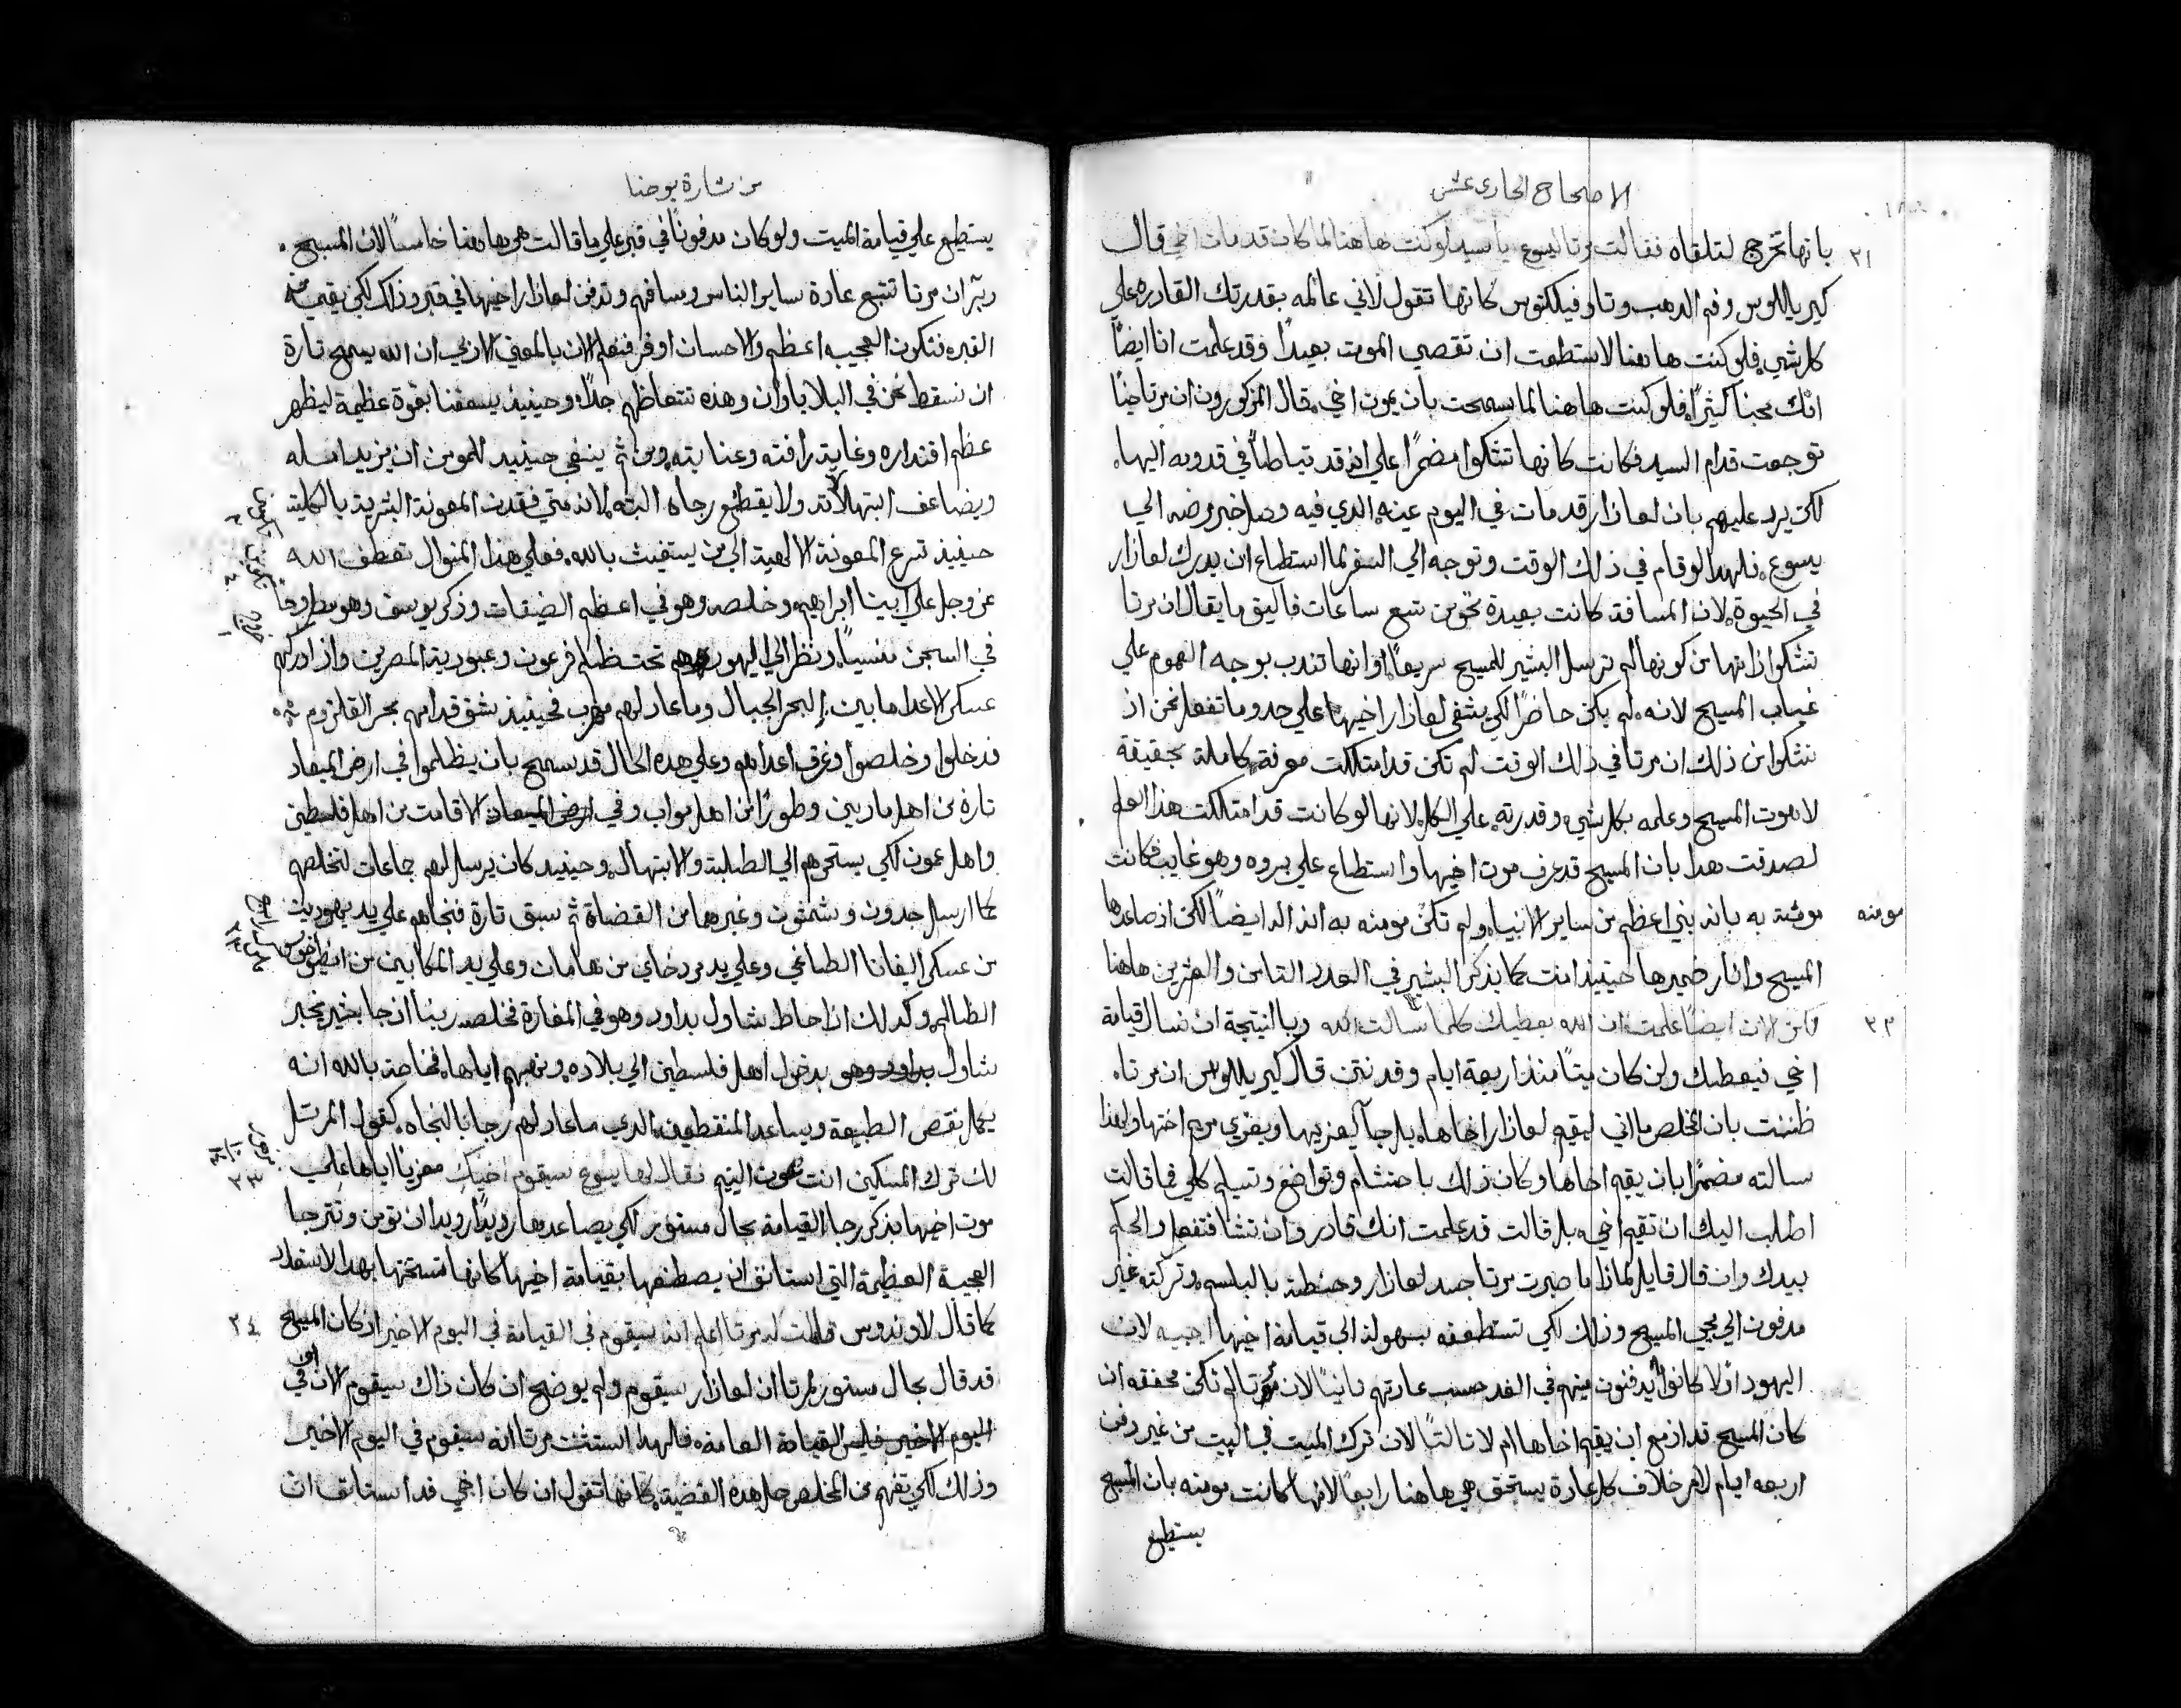 الاصحاح الحادي عشر
٢١ بانها تخرج لتلقاه فقالت مرتا ليسوع يا سيد لو كنت هاهنا لما كان قد مات اخي قال
كيرياللوس وفم الدهب وتاوفيلكتوس كانها تقول لاني عالمه بقدرتك القادره علي
كل شي فلو كنت هاهنا لاستطعت ان تقصي الموت بعيدًا وقد علمت انا ايضًا
انك محبنا كثيرًا فلو كنت هاهنا لما سمحت بان يموت اخي فقال المذكورون ان مرتا ايضًا
توجعت قدام السيد فكانت كانها تشكوا مضمرًا علي انه قد تباطا في قدومه اليها
لكن يرد عليهم بان لعازار قد مات في اليوم عينه الدي فيه وصل خبر مرضه الي
يسوع فلهدا لو قام في ذلك الوقت وتوجه الي السفر لما استطاع ان يدرك لعازار
في الحيوة لان المسافة كانت بعيدة نحو من تسع ساعات فاليق ما يقال ان مرتا
تشكوا ذاتها من كونها لم ترسل البشير للمسيح سريعًا او انها تندب بوجه العموم علي
غياب المسيح لانه لم يكن حاضرًا لكي يشفي لعازار اخيها علي حدو ما تفعل نحن اذ
نتشكوا من ذلك ان مرتا في ذلك الوقت لم تكن قد امتلكت معرفة كاملة بحقيقة
لاهوت المسيح وعلمه بكل شي وقدرته علي الكل لانها لو كانت قد امتلكت هذا العلم
لصدقت هدا بان المسيح قد عرف موت اخيها واستطاع علي بروه وهو غايب فكانت
مومنه مومنة به بانه نبي اعظم من ساير الانبيا ولم تكن مومنه به انه اله ايضًا لكن اذ صاعدها
المسيح وانار ضميرها حينيذ امنت كما يذكر البشير في العدد الثامن والعشرين هاهنا
٢٢ لكن الان ايضًا علمت ان الله يعطيك كلما سالت الله وبالنتيجة ان تسال قيامة
اخي فيعطيك ولين كان ميتًا منذ اربعة ايام وقد نتن قال كيرياللوس ان مرتا
ظننت بان المخلص ما اتي ليقيم لعازار اخاها بل جا ليعزيها ويعزي مريم اختها ولهذا
سالته مضمرًا بان يقيم اخاها وكان ذلك باحتشام وتواضع وتسليم كلي فما قالت
اطلب اليك ان تقيم اخي بل قالت قد علمت انك قادر وان تشا فتفعل والحكم
بيدك وان قال قايل لماذا ما صبرت مرتا جسد لعازار وحنطته بالبلسم وتركته غير
مدفون الي مجي المسيح وذلك لكي تستعطفه بسهولة الي قيامة اخيها اجيب لان
اليهود اولا كانوا يدفنون ميتهم في الغد حسب عادتهم ثانيًا لان مرتا لم تكن محققه ان
كان المسيح قد ازمع ان يقيم اخاها ام لا ثالثًا لان ترك الميت في البيت من غير دفن
اربعه ايام لامر خلاف كل عادة يستحق هي هاهنا رابعًا لانها كانت مومنه بان المسيح
يستطيع
من بشارة يوحنا
يستطيع علي قيامة الميت ولو كان مدفونًا في قبر علي ما قالت هي هاهنا خامسًا لان المسيح
دبر ان مرتا تتبع عادة ساير الناس وتدفن لعازار اخيها في قبر وذلك لكي يقيمه من
القبر فتكون العجيبه اعظم والاحسان اوفر فنعلم الان بالمعني الادبي ان الله يسمح تارة
ان نسقط نحن في البلايا وان وهذه تتعاظم جدًا وحينيذ يسعفنا بقوة عظيمة ليظهر
عظم اقتداره وغاية رافته وعنايته ومن ثم ينبغي حينيد للمومن ان يزيد امله
ويضاعف ابتهالاته ولا يقطع رجاه البته لانه متي فقدت المعونة البشرية بالكلية
حينيذ تسرع المعونة الالهية الي من يستغيث بالله فعلي هذا المنوال تعطف الله
عز وجل علي ابينا ابراهيم وخلصه وهو في اعظم الضيقات وذكر يوسف وهو مطروحًا
في السجن منسيًا ونظر الي اليهود وهم تحت ظلم فرعون وعبودية المصرين واذ ادركهم
عسكر الاعدا ما بين البحر الجبال وما عاد لهم مهرب فحينيذ شق قدامهم بحر القلزوم
فدخلوا وخلصوا وغرق اعداهم وعلي هده الحال قد سمح بان يظلموا في ارض الميعاد
تارة من اهل ماديين وطورًا من اهل مواب وفي ارض الميعاد الاقامت من اهل فلسطين
واهل عمون لكي يستحرهم الي الطلبة والابتهال وحينيد كان يرسل لهم جماعات لتخلصهم
كما ارسل جدون وشمشون وغيرهما من القضاة ثم سبق تارة فنجاهم علي يد يهوديت
من عسكر اليفانا الطاغي وعلي يد مردخاي من هامان وعلي يد المكابين من انطيوخوس
الظالم وكدلك اذ احاط شاول بداود وهو في المغارة فخلصه ربنا اذ جا بخير يخبر
شاول بداود وهو بدخول اهل فلسطين الي بلاده ونهبهم اياها فخاصة بالله انه
يكمل نقص الطبيعة ويساعد المنقطعين الدي ما عاد لهم رجا بالنجاه كقول المرتل
لك ترك المسكين انت عون اليتيم فقال لها يسوع سيقوم اخيك معزيًا اياها علي
موت اخيها بذكر رجا القيامة بحال مستور لكي يصاعدها رويدًا رويدا ان تومن وتترجا
العجيبة العظيمة التي استانف ان يصطنعها بقيامة اخيها كانها تستحقها بهدا الاستعداد
كما قال لاونديوس قالت له مرتا اعلم انه سيقوم في القيامة في اليوم الاخير اذ كان المسيح ٢٤
قد قال بحال مستور لمرتا ان لعازار سيقوم ولم يوضح ان كان ذاك سيقوم الان او في
اليوم الاخير القيامة العامة فلهدا استثنت مرتا انه سيقوم في اليوم الاخير
وذلك لكي تفهم من المخلص حل هذه القضية كانها تقول ان كان اخي قد استانف ان